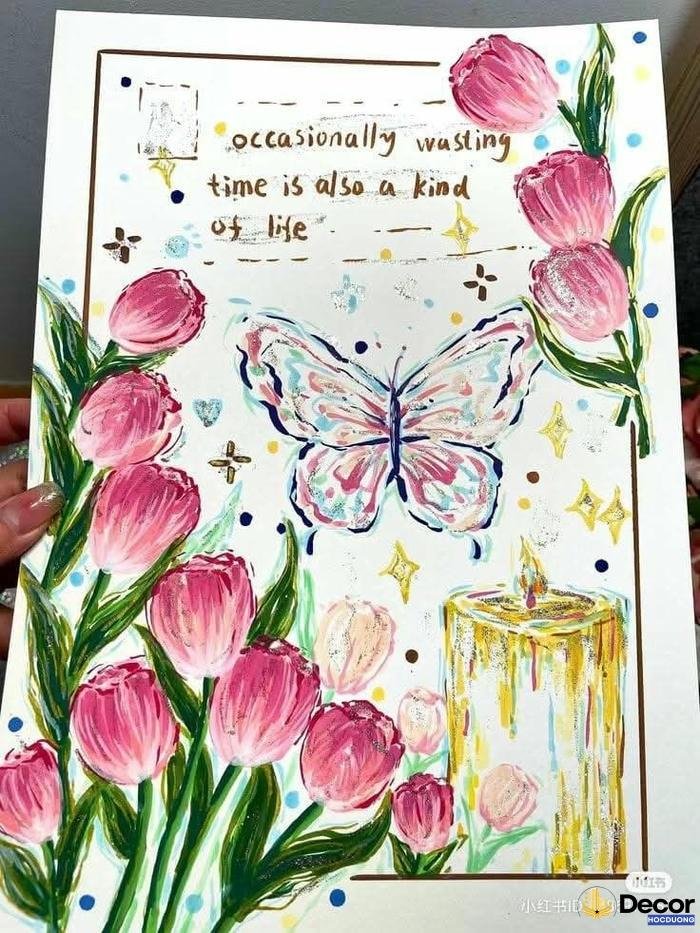 occasionally wasting
time is also a kind
of life
小红书
小红书ID:
Decor
HOCDUONG